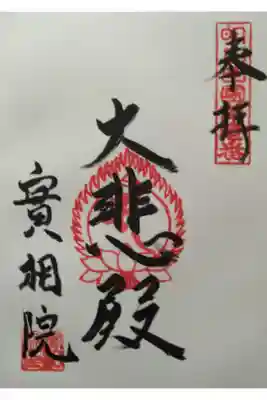 奉拝
大悲心殿
實相院